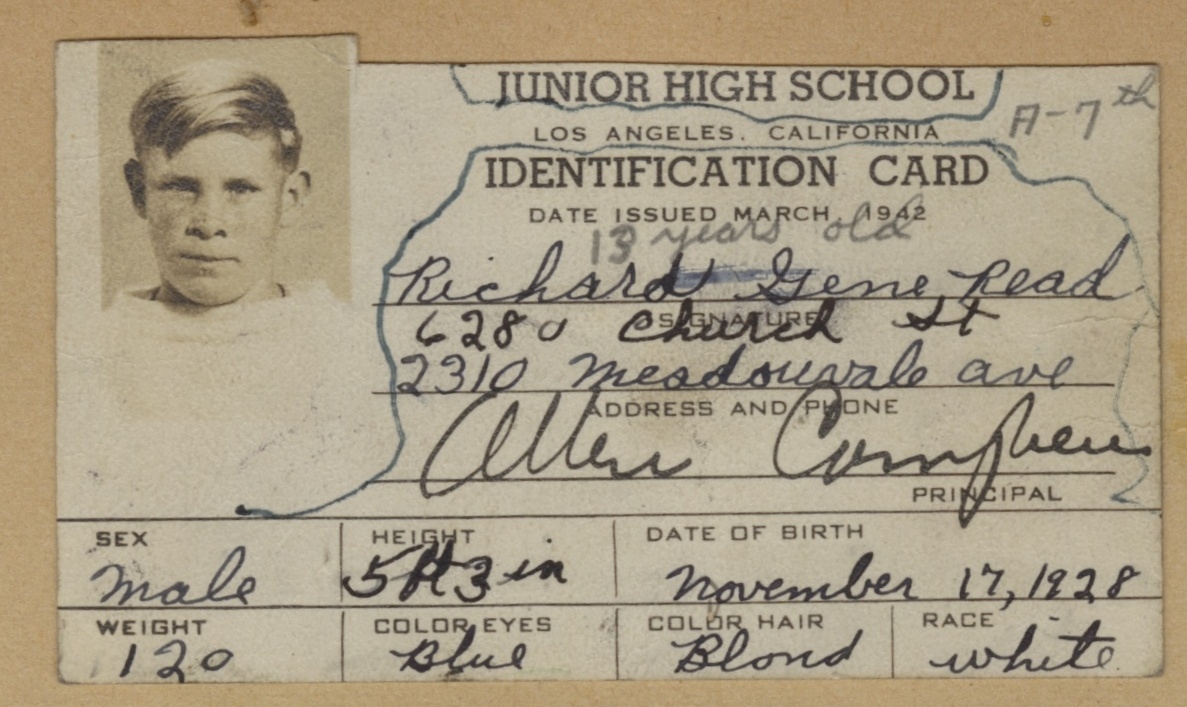 JUNIOR HIGH SCHOOL
A-7th
LOS ANGELES. CALIFORNIA
IDENTIFICATION CARD
DATE ISSUED MARCH, 1942
13 years old
Richard Gene Read
SIGNATURE
6280 Church St
2310 Meadowvale ave
ADDRESS AND PHONE
Allen
PRINCIPAL
SEX HEIGHT DATE OF BIRTH
Male 5 ft 3 in November 17, 1928
WEIGHT COLOR EYES COLOR HAIR RACE
120 Blue Blond white